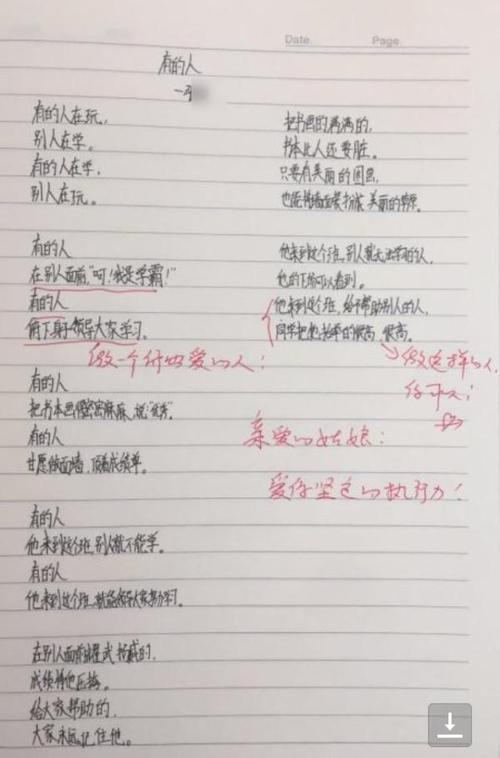 Date.
Page.
有的人
有的人在玩,
别人在学。
有的人在学,
别人在玩。
有的人
在别人面前,"呵!我是学霸!"
有的人
俯下身子领导大家学习.
做一个付出爱的人!
有的人
把书本画得密密麻麻,说
有的人
甘愿做面墙,顶着成绩单。
有的人
他来到这个班,别人就不能学。
有的人
他来到这个班,就能领导大家努力学习。
在别人面前耀武扬威的,
成绩将他压垮。
给大家帮助的,
大家永远记住他。
把书画的满满的,
书本比人还要脏。
只要有美丽的图画,
也能将墙面装扮成美丽的
他来到这个班,别人就无法学的人,
他的下场可以看到。
他来到这班,给予帮助别人的人,
同学把他抬举的很高,很高。
做这样的人,
你可以!
亲爱的姑娘:
爱你坚定的执行力!